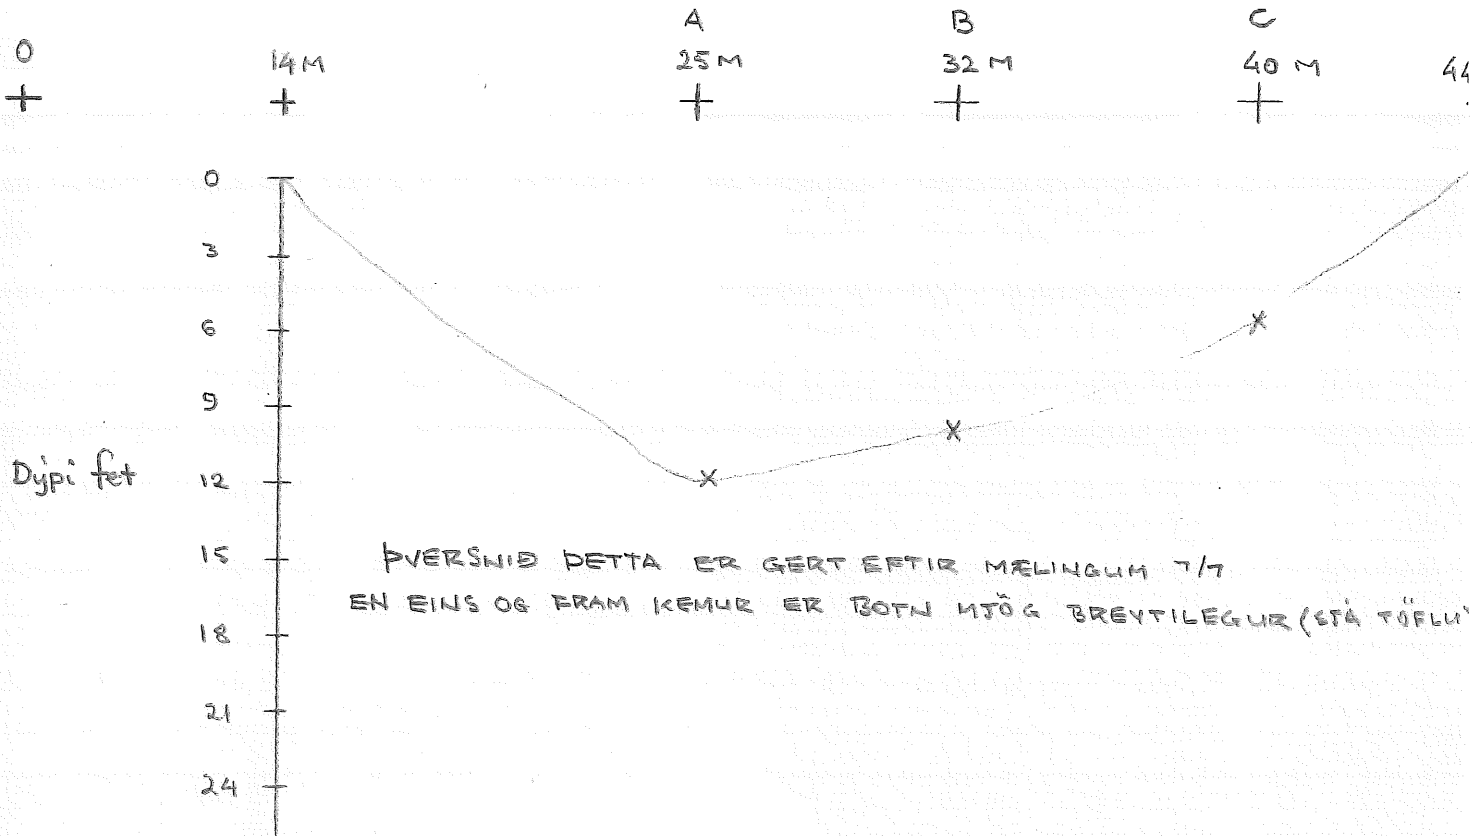 A B C
0 14 M 25 M 32 M 40 M 44
0
3
6
9
Dýpi fet 12
15
ÞVERSNIÐ ÞETTA ER GERT EFTIR MÆLINGUM 7/7
EN EINS OG FRAM KEMUR ER BOTN MJÖG BREYTILEGUR (SJÁ TÖFLU
18
21
24